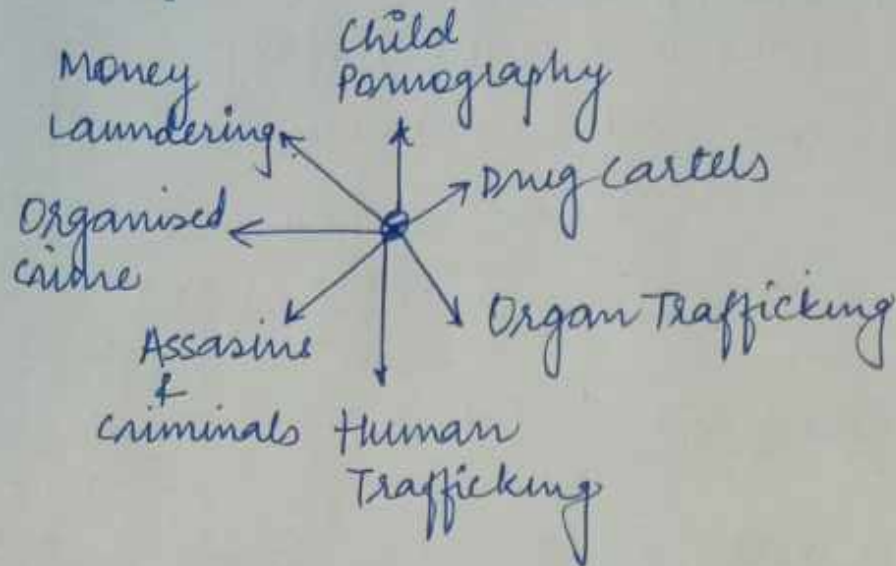 Child
Pornography
Money
Laundering
Drug Cartels
Organised
crime
Organ Trafficking
Assasins
&
criminals
Human
Trafficking